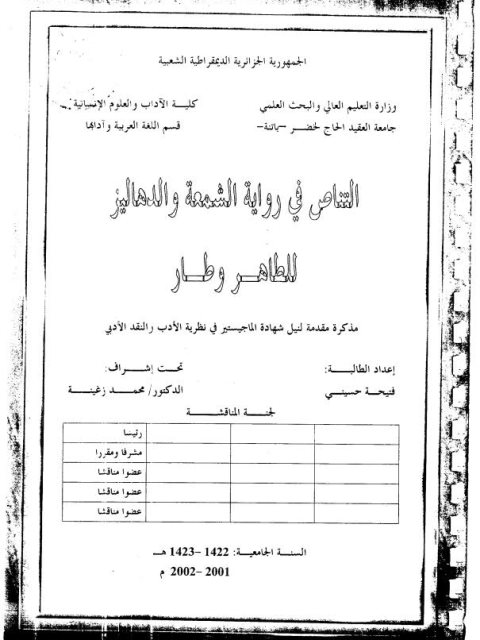 الجمهورية الجزائرية الديمقراطية الشعبية
وزارة التعليم العالي والبحث العلمي
كليـة الآداب والعلوم الإنسانية
جامعة العقيد الحاج لخضـر –باتنة–
قسم اللغة العربية وآدابها
التناص في رواية الشمعة والدهاليز
للطاهـر وطـار
مذكرة مقدمة لنيل شهادة الماجيستير في نظرية الأدب والنقد الأدبي
إعداد الطالبـــة:
تحـت إشـراف:
فتيحة حسينـي
الدكتور/ محمـد زغينـة
لجنـة المناقشـة
رئيسا
مشرفا ومقررا
عضوا مناقشا
عضوا مناقشا
عضوا مناقشا
السنـة الجامعيـة: 1422 –1423 هـ
2001 –2002 م